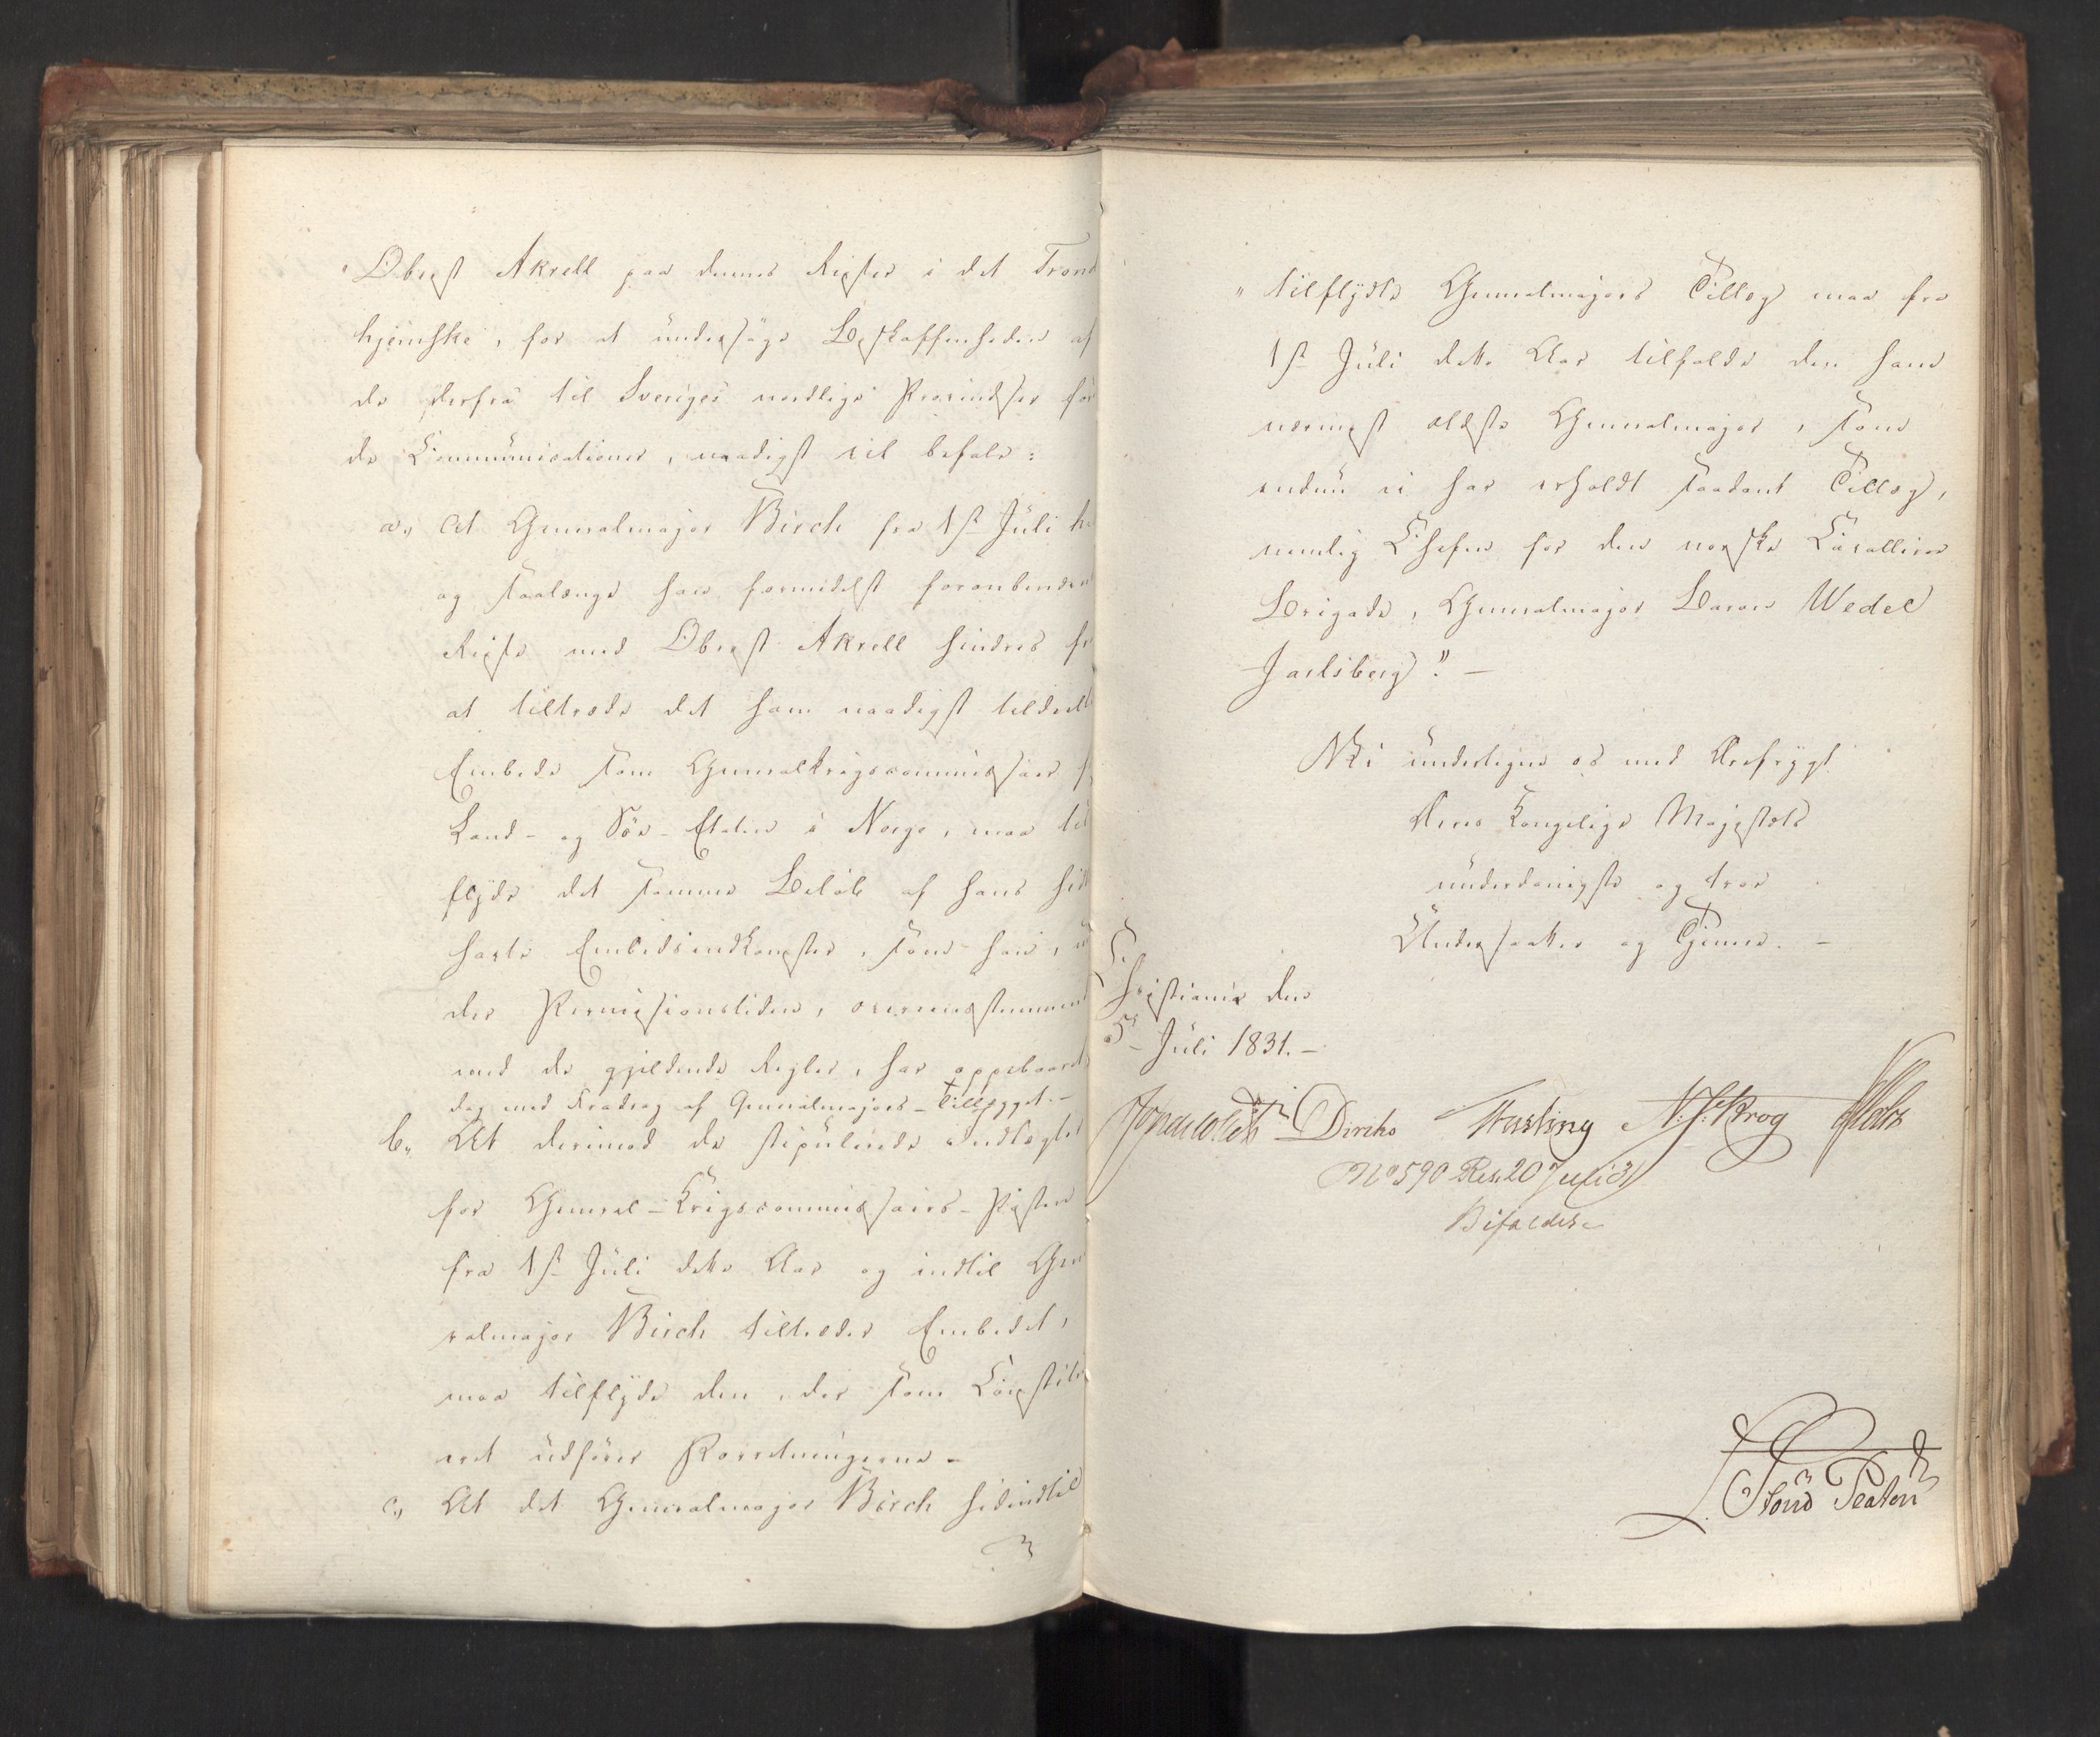 "Oberst Akrell paa dennes Reiser i det Trond
hjemske, for at undersøge Beskaffenheden af
de derfra til Sveriges nordlige Provindser før
de Communicationer, naadigst vil befale:
a, At Generalmajor Birch fra 1ste Juli
og saalænge han formedelst foranbemeldte
Reise med Oberst Akrell hindres
at tiltræde det ham naadigst tildeelte
Embede som Generalkrigscommissair
Land- og Söe-Etaten i Norge, maa til
flyde det samme Belöb af hans hid
havte Embedsindkomster, som han, u
der Permissionstiden, overensstemmen
med de gjeldende Regler, har oppebaaret,
dog med Fradrag af Generalmajors-Tillægget.-
b, At derimod de stipulerede Indtægter
for General-Krigscommissairs-Posten
fra 1ste Juli dette Aar og indtil Gen
ralmajor Birch tiltræder Embedet,
maa tilflyde den, der som Constitu
eret udförer Forretningerne.-
c, At det Generalmajor Birch hidindtil
" tilflydte Generalmajors Tillæg maa fra
1ste Juli dette Aar tilfalde den ham
nærmest ældste Generalmajor, som
endnu ei har erholdt saadant Tillæg,
nemlig Chefen for den norske Cavallerie
Brigade, Generalmajor Baron Wedel
Jarlsberg." -
Vi undertegne os med Ærefrygt
Deres Kongelige Majestæts
underdanigste og troe
Undersaatter og Tjenere. -
Christiania den
5te Juli 1831. -
Jonas Collett Diriks Fasting N. J. Krog
No 590 Res. 20 Juli 31
Bifaldes